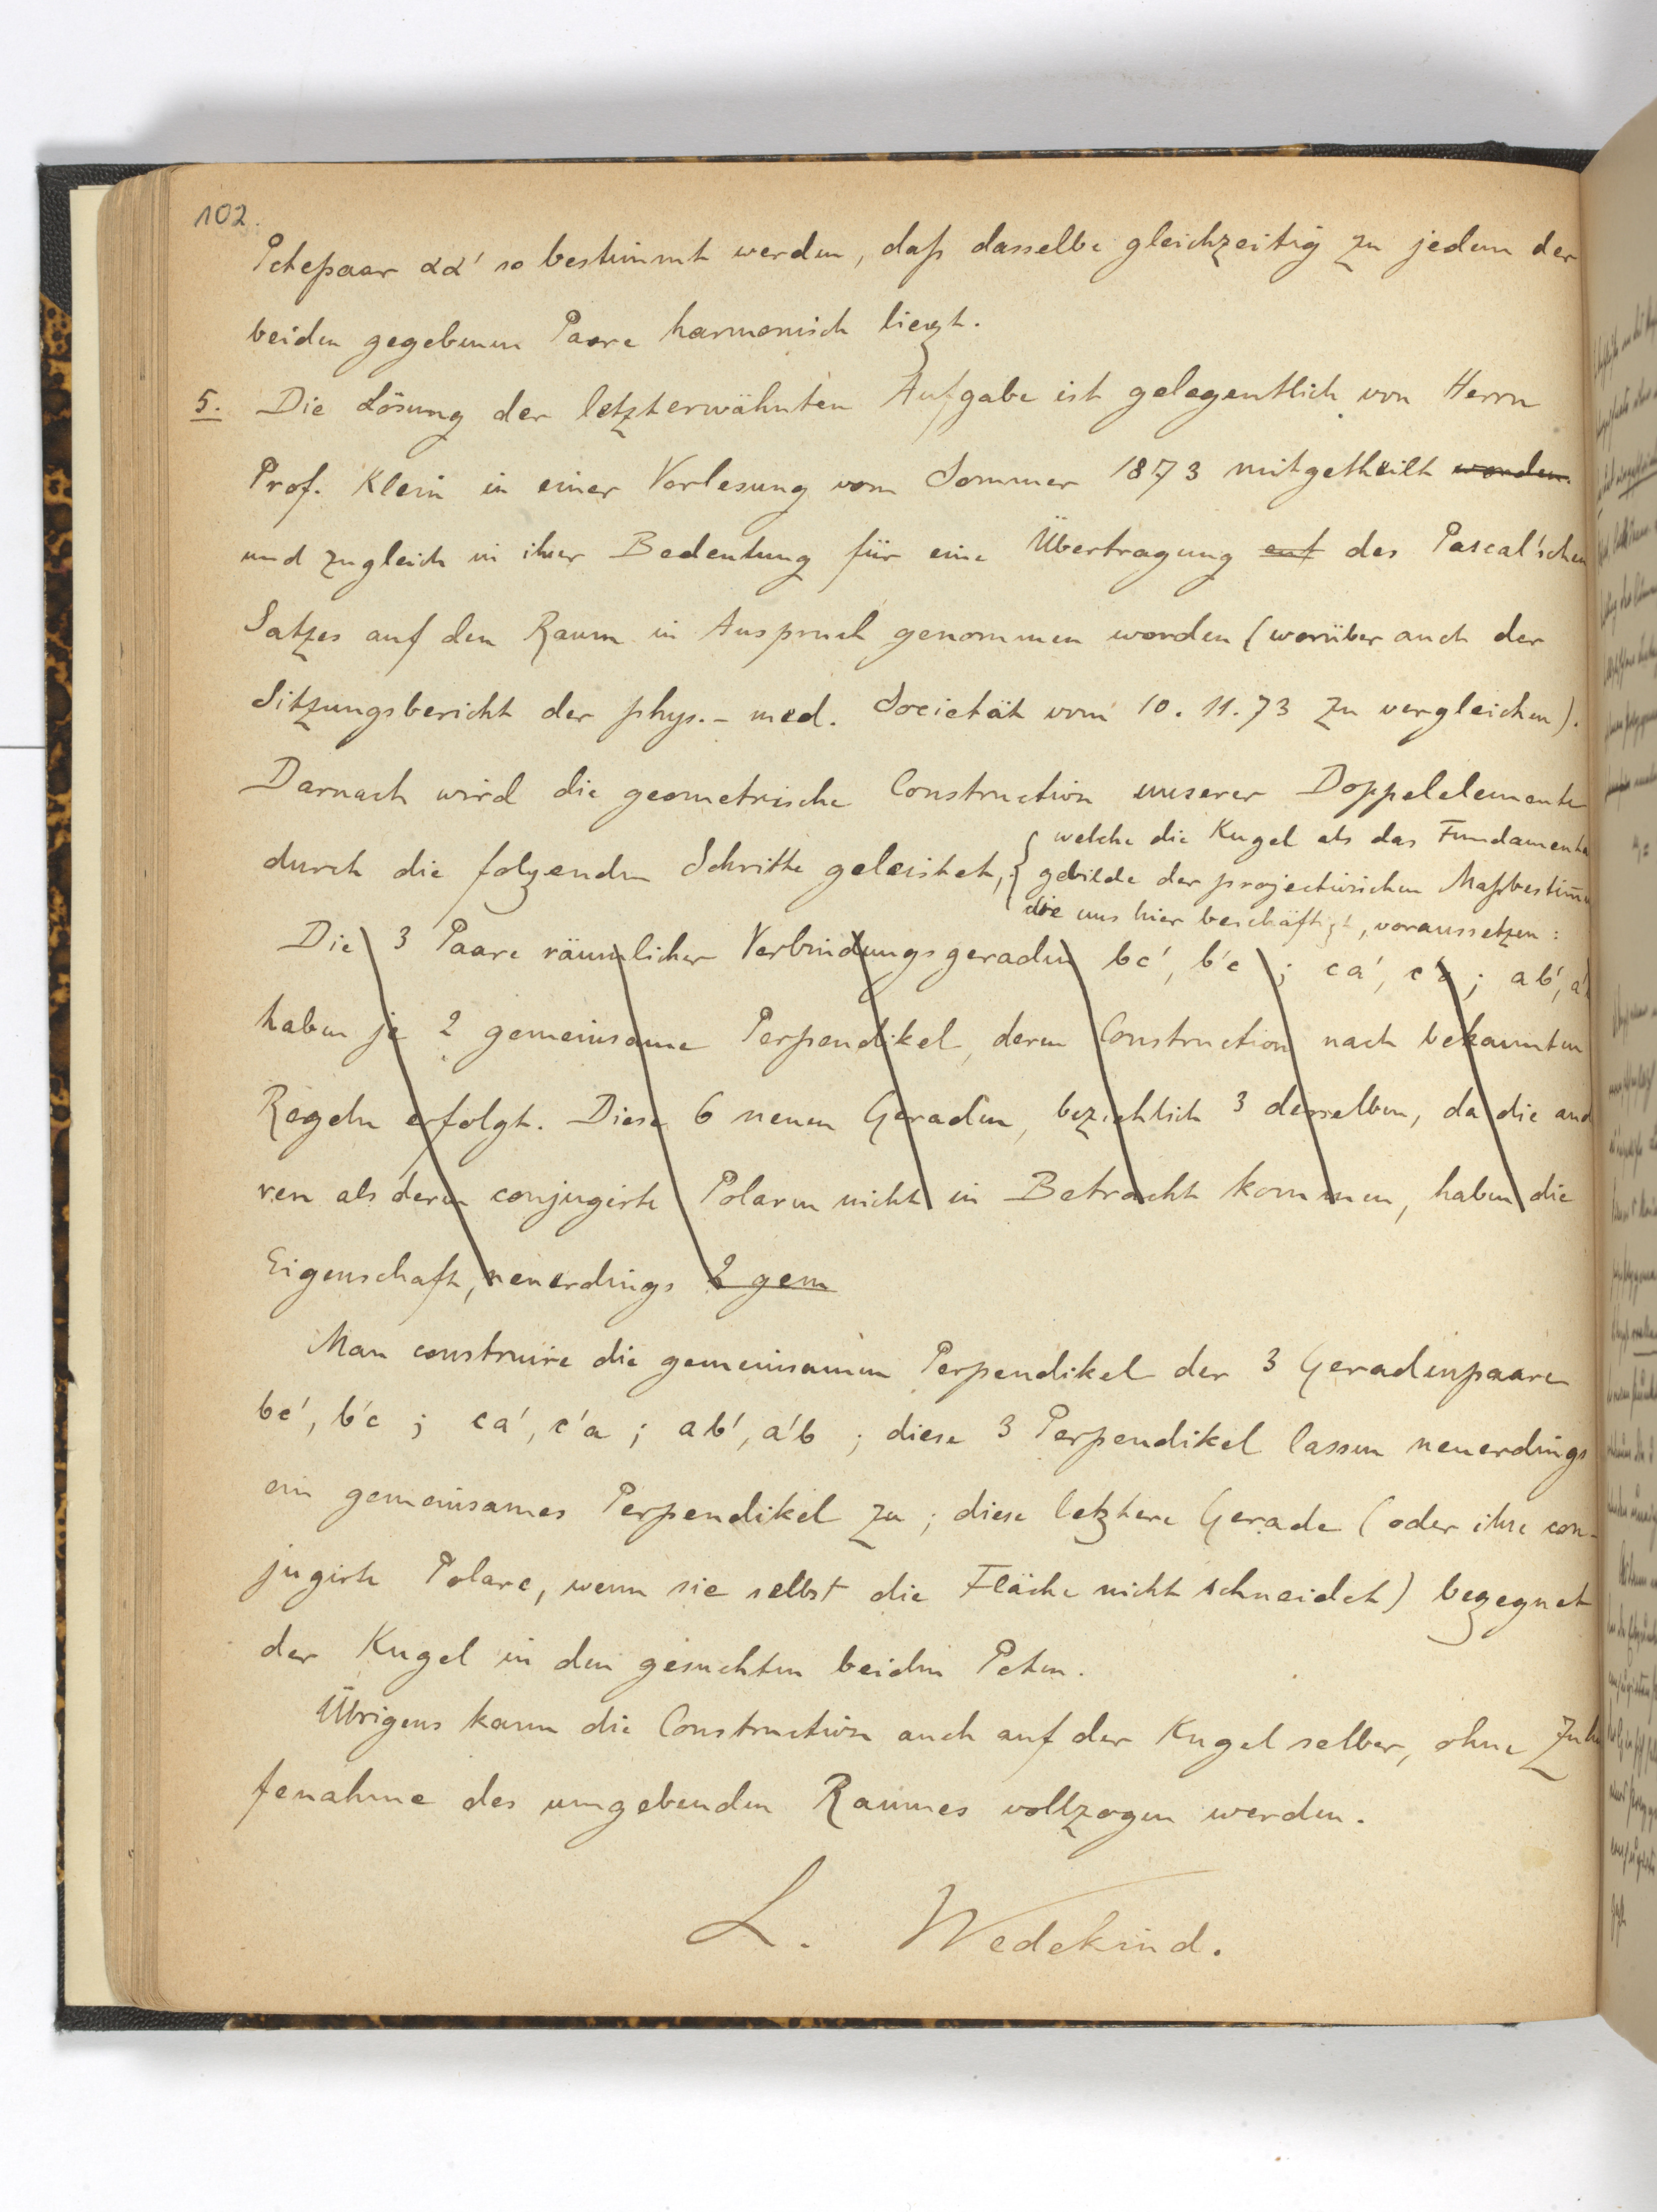 102.
Pctepaar αα' so bestimmt werden, daß dasselbe gleichzeitig zu jedem der
beiden gegebenen Paare harmonisch liegt.
5. Die Lösung der letzterwähnten Aufgabe ist gelegentlich von Herrn
Prof. Klein in einer Vorlesung vom Sommer 1873 mitgetheilt worden.
und zugleich in ihrer Bedeutung für eine Übertragung auf des Pascal'schen
Satzes auf den Raum in Anspruch genommen worden (worüber auch der
Sitzungsbericht der phys.- med. Societät vom 10. 11. 73 zu vergleichen).
Darnach wird die geometrische Construction unserer Doppelelemente
durch die folgenden Schritte geleistet,
welche die Kugel als das Fundamental
gebilde der projectivischen Maßbestim̄u
die uns hier beschäftigt, voraussetzen:
Die 3 Paare räumlicher Verbindungsgeraden bc', b'c ; ca', c'a ; ab', a'b
haben je 2 gemeinsame Perpendikel, deren Construction nach bekannten
Regeln erfolgt. Diese 6 neuen Geraden, bezichtlich 3 derselben, da die and
ren als deren conjugirte Polaren nicht in Betracht kommen, haben die
Eigenschaft, neuerdings 2 gem
Man construire die gemeinsamen Perpendikel der 3 Geradenpaare
bc', b'c ; ca', c'a ; ab', a'b ; diese 3 Perpendikel lassen neuerdings
ein gemeinsames Perpendikel zu ; diese letztere Gerade (oder ihre con-
jugirte Polare, wenn sie selbst die Fläche nicht schneidet) begegnet
der Kugel in den gesuchten beiden Pcten.
Übrigens kann die Construction auch auf der Kugel selber, ohne Zuhü
fenahme des umgebenden Raumes vollzogen werden.
L. Wedekind.